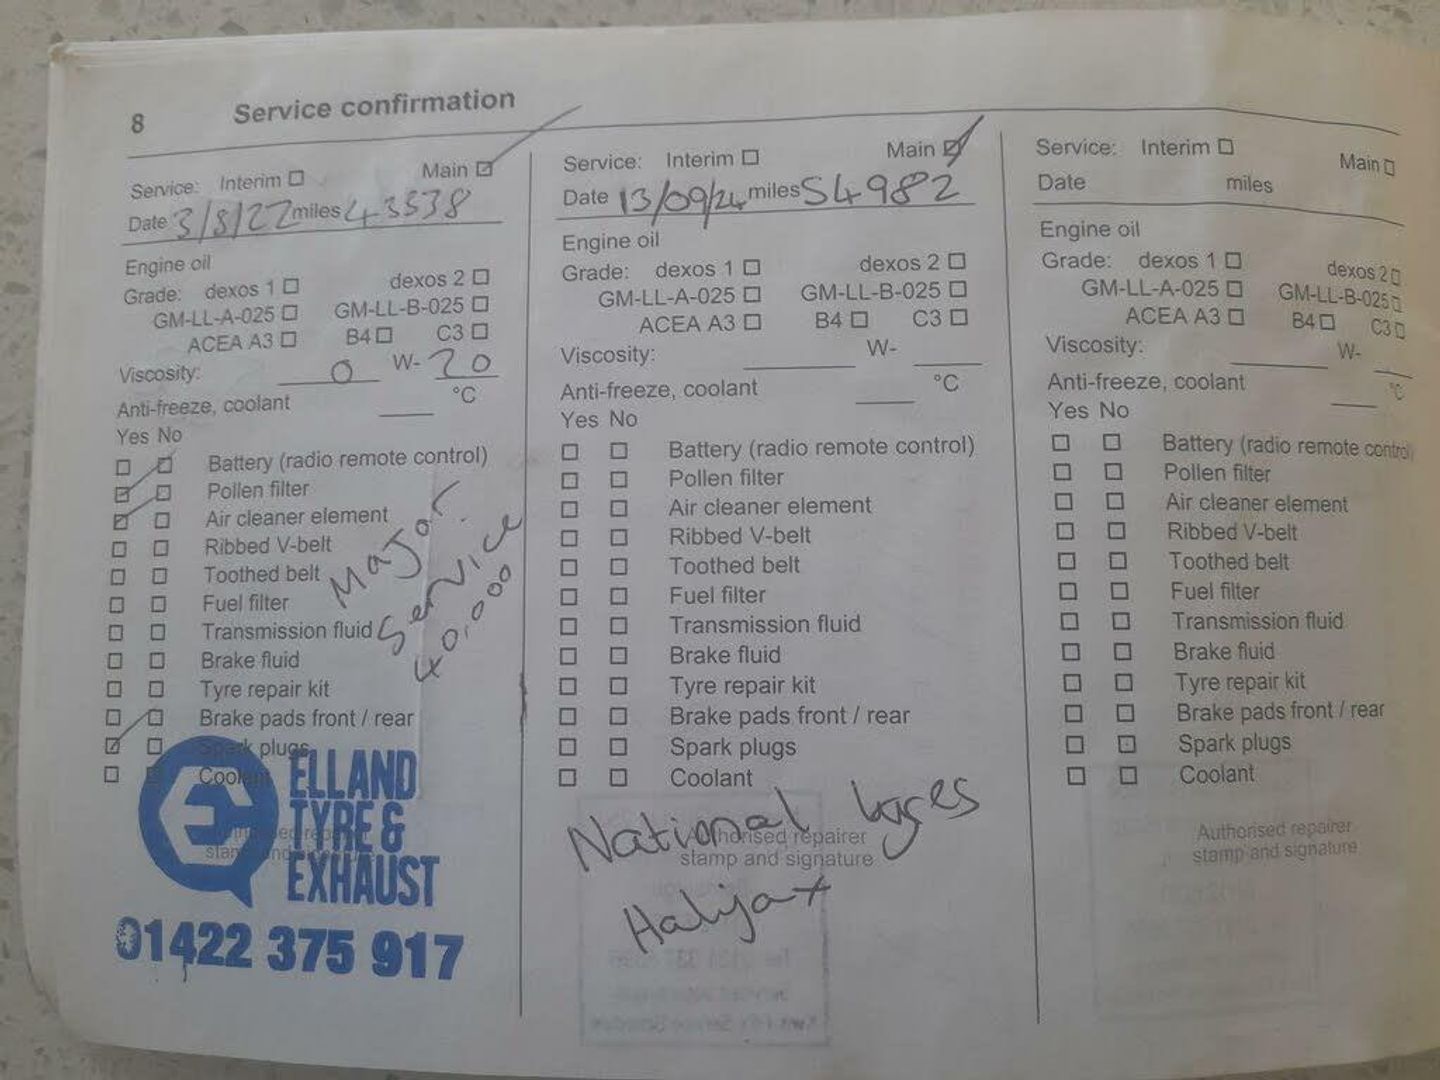 8 Service confirmation
Service: Interim Main
Date 3/8/22 miles 43538
Engine oil
Grade: dexos 1 dexos 2
GM-LL-A-025 GM-LL-B-025
ACEA A3 B4 C3
Viscosity: 0 W- 20
Anti-freeze, coolant °C
Yes No
Battery (radio remote control)
Pollen filter
Air cleaner element
Ribbed V-belt
Toothed belt
Fuel filter
Transmission fluid
Brake fluid
Tyre repair kit
Brake pads front / rear
Spark plugs
Coolant
Major
Service
40,000
ELLAND
TYRE &
EXHAUST
01422 375 917
Service: Interim Main
Date 13/09/24 miles 54982
Engine oil
Grade: dexos 1 dexos 2
GM-LL-A-025 GM-LL-B-025
ACEA A3 B4 C3
Viscosity: W-
Anti-freeze, coolant °C
Yes No
Battery (radio remote control)
Pollen filter
Air cleaner element
Ribbed V-belt
Toothed belt
Fuel filter
Transmission fluid
Brake fluid
Tyre repair kit
Brake pads front / rear
Spark plugs
Coolant
National tyres
Authorised repairer
stamp and signature
Halifax
Service: Interim Main
Date miles
Engine oil
Grade: dexos 1 dexos 2
GM-LL-A-025 GM-LL-B-025
ACEA A3 B4 C3
Viscosity: W-
Anti-freeze, coolant °C
Yes No
Battery (radio remote control)
Pollen filter
Air cleaner element
Ribbed V-belt
Toothed belt
Fuel filter
Transmission fluid
Brake fluid
Tyre repair kit
Brake pads front / rear
Spark plugs
Coolant
Authorised repairer
stamp and signature